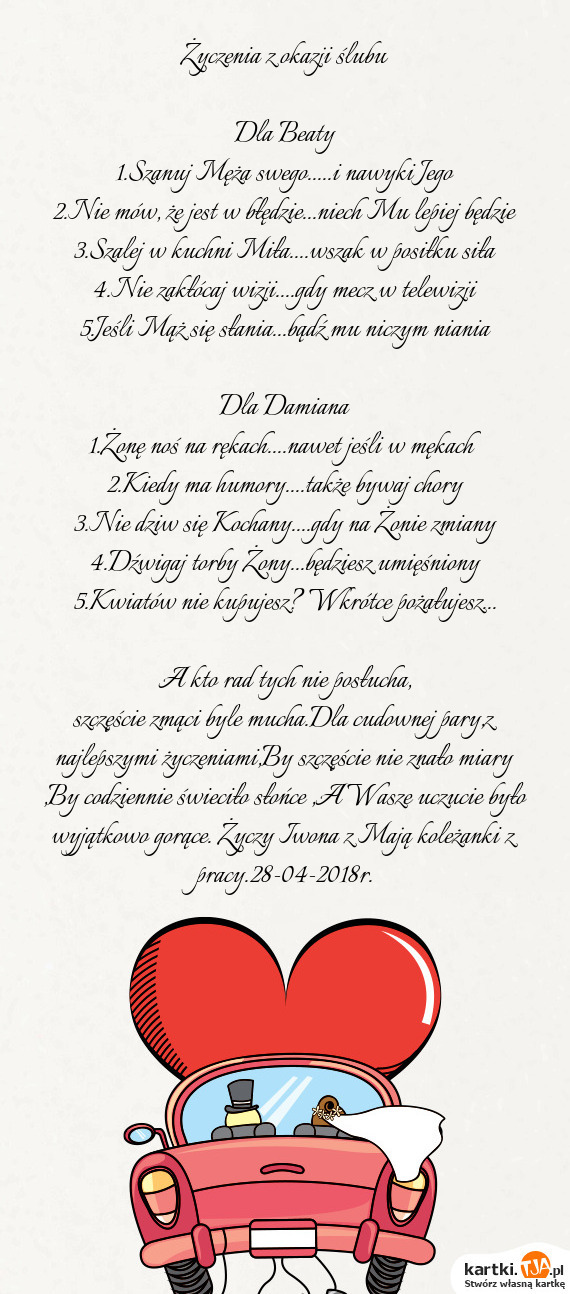 Życzenia z okazji ślubu
Dla Beaty
1.Szanuj Męża swego.....i nawyki Jego
2.Nie mów, że jest w błędzie...niech Mu lepiej będzie
3.Szalej w kuchni Miła....wszak w posiłku siła
4.Nie zakłócaj wizji....gdy mecz w telewizji
5.Jeśli Mąż się słania...bądź mu niczym niania
Dla Damiana
1.Żonę noś na rękach....nawet jeśli w mękach
2.Kiedy ma humory....także bywaj chory
3.Nie dziw się Kochany....gdy na Żonie zmiany
4.Dźwigaj torby Żony...będziesz umięśniony
5.Kwiatów nie kupujesz? Wkrótce pożałujesz...
A kto rad tych nie posłucha,
szczęście zmąci byle mucha.Dla cudownej pary,z
najlepszymi życzeniami,By szczęście nie znało miary
,By codziennie świeciło słońce ,A Wasze uczucie było
wyjątkowo gorące. Życzy Iwona z Mają koleżanki z
pracy.28-04-2018r.
kartki.TJA.pl
Stwórz własną kartkę